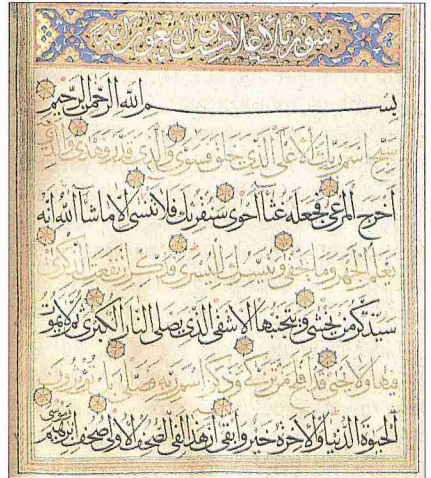 سورة الاعلى
بِسْمِ اللهِ الرَّحْمٰنِ الرَّحِيمِ
سَبِّحِ اسْمَ رَبِّكَ الْاَعْلَى الَّذِي خَلَقَ فَسَوَّى وَالَّذِي قَدَّرَ فَهَدَى وَالَّذِي
اَخْرَجَ الْمَرْعَى فَجَعَلَهُ غُثَاءً اَحْوَى سَنُقْرِئُكَ فَلَا تَنْسَى اِلَّا مَا شَاءَ اللهُ اِنَّهُ
يَعْلَمُ الْجَهْرَ وَمَا يَخْفَى وَنُيَسِّرُكَ لِلْيُسْرَى فَذَكِّرْ اِنْ نَفَعَتِ الذِّكْرَى
سَيَذَّكَّرُ مَنْ يَخْشَى وَيَتَجَنَّبُهَا الْاَشْقَى الَّذِي يَصْلَى النَّارَ الْكُبْرَى ثُمَّ لَا يَمُوتُ
فِيهَا وَلَا يَحْيَى قَدْ اَفْلَحَ مَنْ تَزَكَّى وَذَكَرَ اسْمَ رَبِّهِ فَصَلَّى بَلْ تُؤْثِرُونَ
الْحَيٰوةَ الدُّنْيَا وَالْاٰخِرَةُ خَيْرٌ وَاَبْقَى اِنَّ هٰذَا لَفِي الصُّحُفِ الْاُولَى صُحُفِ اِبْرٰهِيمَ وَمُوسَى